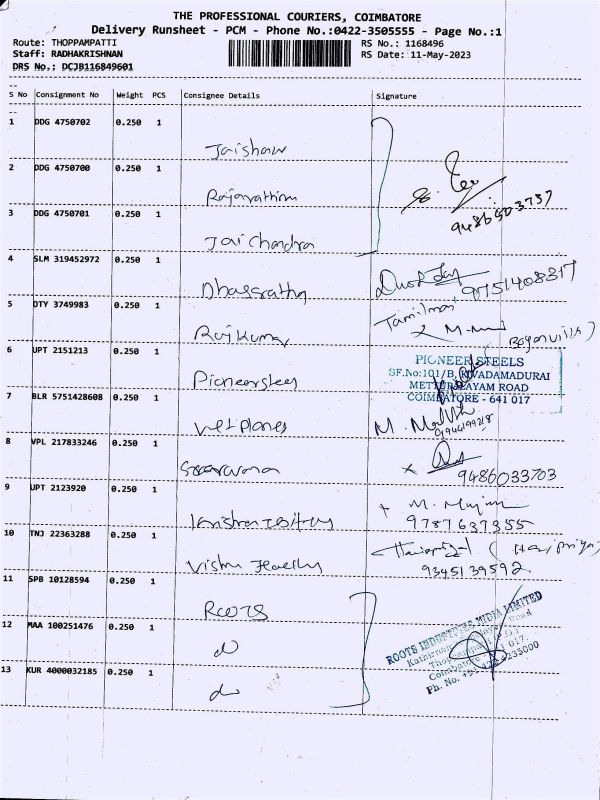 THE PROFESSIONAL COURIERS, COIMBATORE
Delivery Runsheet - PCM - Phone No.:0422-3505555 - Page No.:1
Route: THOPPAMPATTI
RS No.: 1168496
Staff: RADHAKRISHNAN
RS Date: 11-May-2023
DRS No.: DCJB116849601
S No Consignment No Weight PCS Consignee Details Signature
1 DDG 4750702 0.250 1
Jaishaw
2 DDG 4750700 0.250 1
Rajarathinm
9486503737
3 DDG 4750701 0.250 1
Jai Chandra
4 SLM 319452972 0.250 1
9751408317
5 DTY 3749983 0.250 1
Rajkumar
Tamilmani
6 UPT 2151213 0.250 1
Pioneersteels
PIONEER STEELS
SF.No:101/B, K.VADAMADURAI
METTUPALAYAM ROAD
COIMBATORE - 641 017
7 BLR 5751428608 0.250 1
Wet planes
8 VPL 217833246 0.250 1
Saaravana
9486033703
9 UPT 2123920 0.250 1
9787637355
10 TNJ 22363288 0.250 1
(Haripriya)
9345139592
11 SPB 10128594 0.250 1
Roots
12 MAA 100251476 0.250 1
ROOTS INDUSTRIES INDIA LIMITED
13 KUR 4000032185 0.250 1